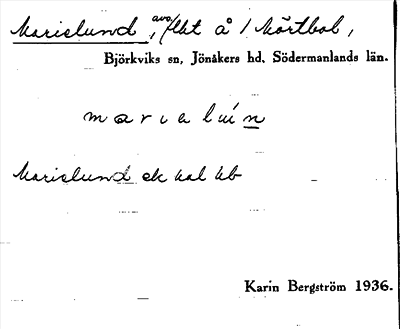 Marielund, avs/lht å 1 Mörtbol,
Björkviks sn, Jönåkers hd, Södermanlands län.
marielún
Marielund ek kal kb
Karin Bergström 1936.